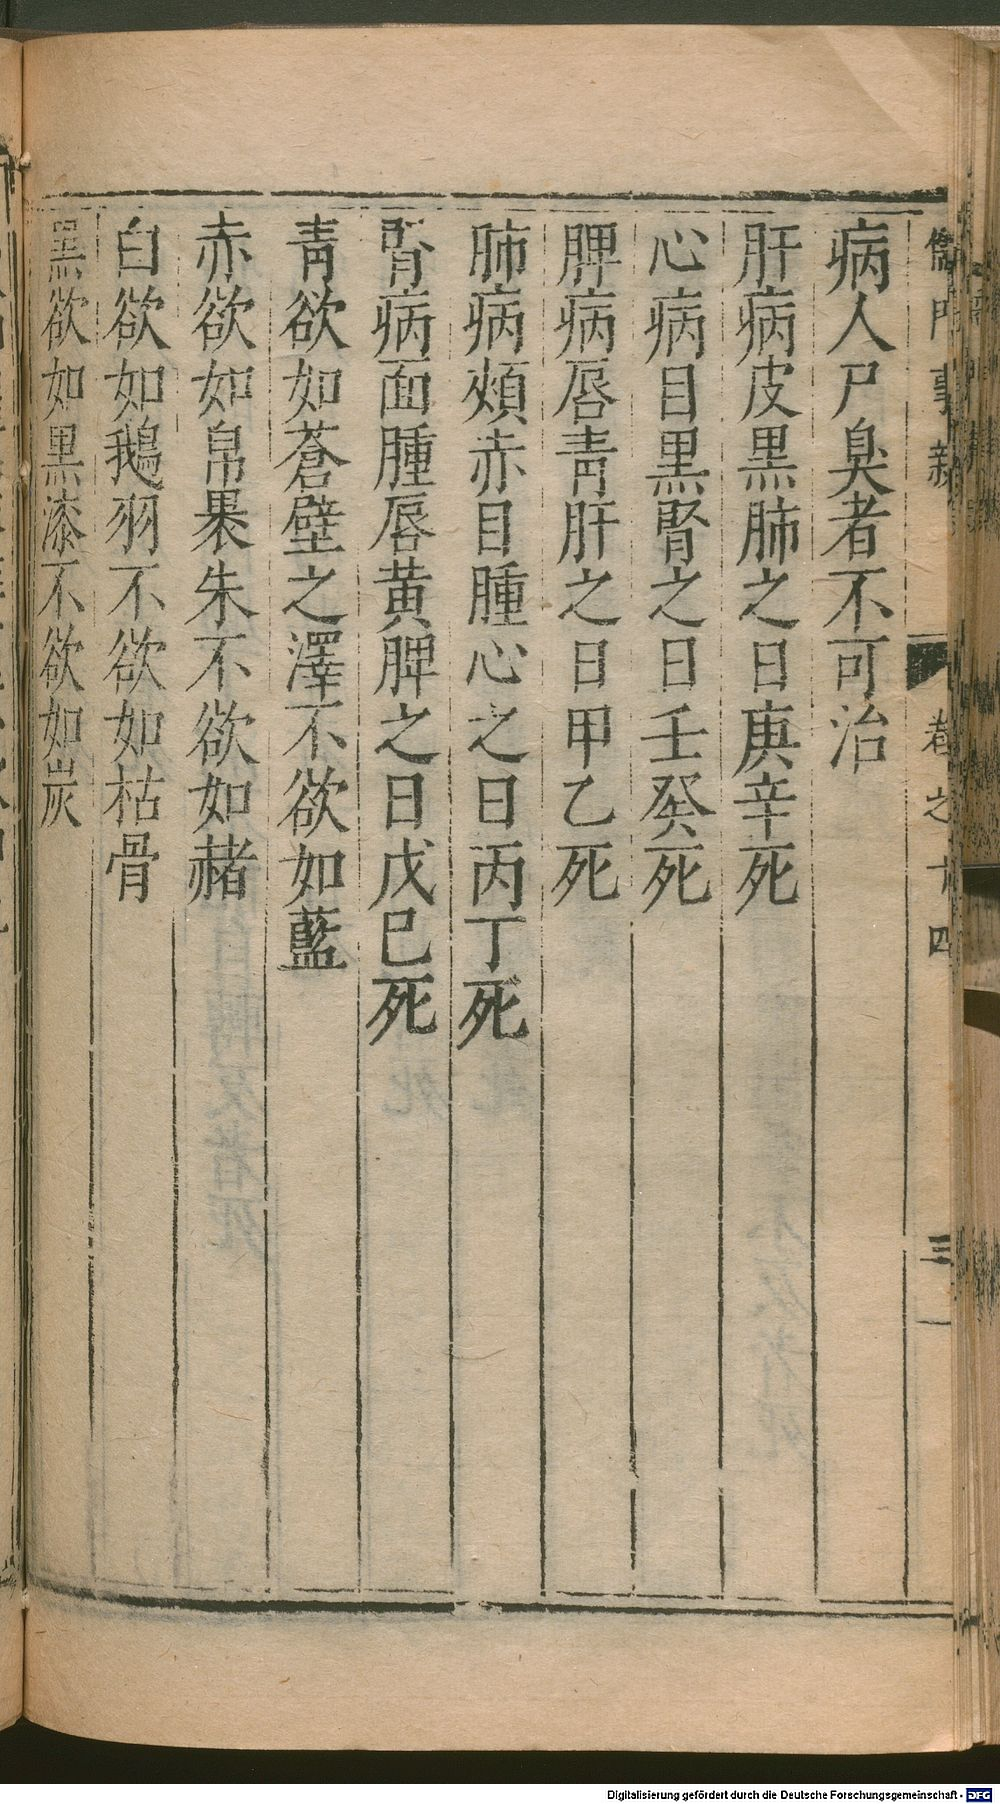 儒門事親 卷之十四 三
病人尸臭者不可治
肝病皮黑肺之日庚辛死
心病目黑腎之日壬癸死
脾病唇青肝之日甲乙死
肺病頰赤目腫心之日丙丁死
腎病面腫唇黃脾之日戊巳死
青欲如蒼壁之澤不欲如藍
赤欲如帛裹朱不欲如赭
白欲如鵝羽不欲如枯骨
黑欲如黑漆不欲如炭
Digitalisierung gefördert durch die Deutsche Forschungsgemeinschaft - DFG